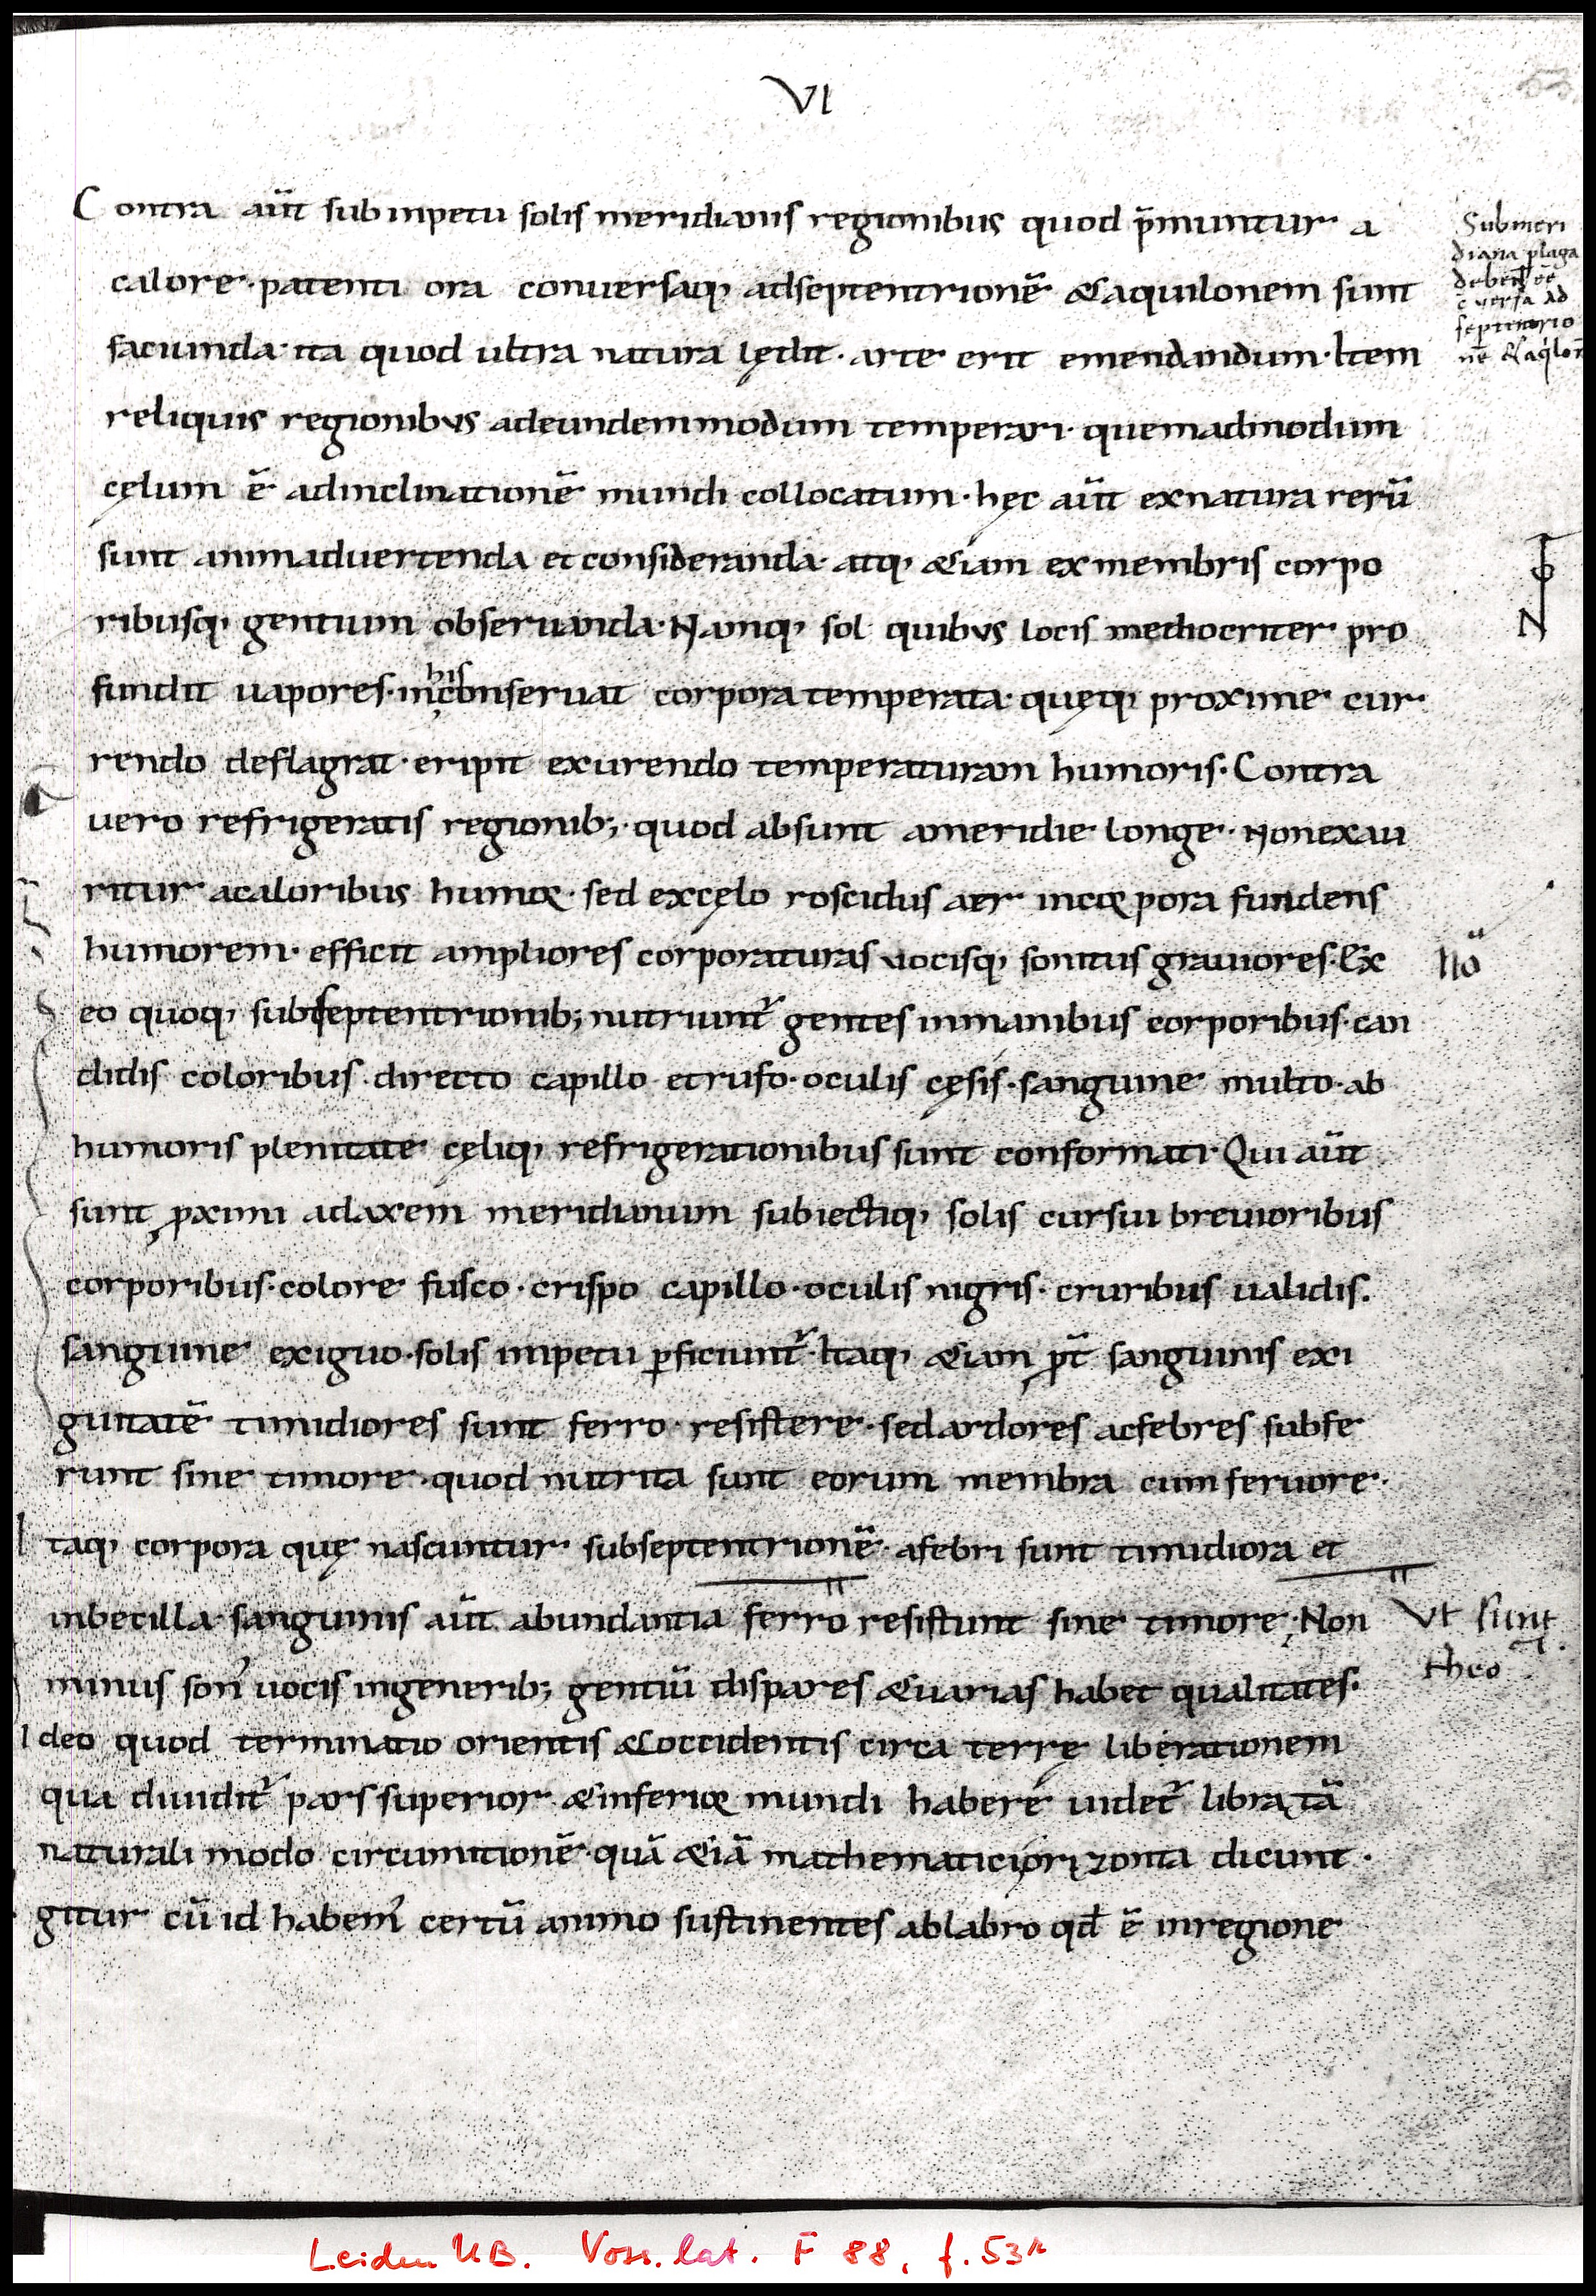 VI
Contra aūt sub inpetu solis meridianis regionibus quod p̄muntur a
calore· patenti ora conversaq; adseptentrionē &aquilonem sunt
faciunda· ita quod ultra natura lędit· arte erit emendandum· Item
reliquis regionibus adeundemmodum temperari· quemadmodum
cęlum ē adinclinationē mundi collocatum· hęc aūt exnatura rerū
sunt animadvertenda et consideranda· atq; &iam exmembris corpo
ribusq; gentium observanda· Namq; sol quibus locis mediocriter pro
fundit vapores· in his conservat corpora temperata· quęq; proxime cur
rendo deflagrat· eripit exurendo temperaturam humoris· Contra
vero refrigeratis regionib;· quod absunt ameridie longe· Nonexau
ritur acaloribus humor· sed excęlo roscidus aer incorpora fundens
humorem· efficit ampliores corporaturas vocisq; sonitus graviores· Ex
eo quoq; subseptentrionib; nutriunt᷑ gentes inmanibus corporibus· can
didis coloribus· directo capillo et rufo· oculis cęsis· sanguine multo· ab
humoris plenitate cęliq; refrigerationibus sunt conformati· Qui aūt
sunt ꝓximi adaxem meridianum subiectiq; solis cursui brevioribus
corporibus· colore fusco· crispo capillo· oculis nigris· cruribus validis·
sanguine exiguo· solis impetu ꝑficiunt᷑· Itaq; &iam ꝓpt̄ sanguinis exi
guitatē timidiores sunt ferro· resistere· sed ardores acfebres subfe
runt sine timore· quod nutrita sunt eorum membra cum fervore·
Itaq; corpora quę nascuntur subseptentrionē· afebri sunt timidiora et
inbecilla· sanguinis aūt abundantia ferro resistunt sine timore· Non
minus son᷒ vocis ingenerib; gentiū dispares &varias habet qualitates·
Ideo quod terminatio orientis &occidentis circa terrę liberationem
qua dividit᷑ pars superior &inferior mundi habere videt᷑ libratā
naturali modo circumitionē· quā &iā mathematici orizonta dicunt·
gitur cū id habem᷒ certū animo sustinentes ablabro qđ ē inregione
Submeri
diana plaga
debent eē
c̄versa ad
septentrio
nē &aq̇lonē
Nō
Vt sunt
theo
Leiden UB. Voss. lat. F 88, f. 53r